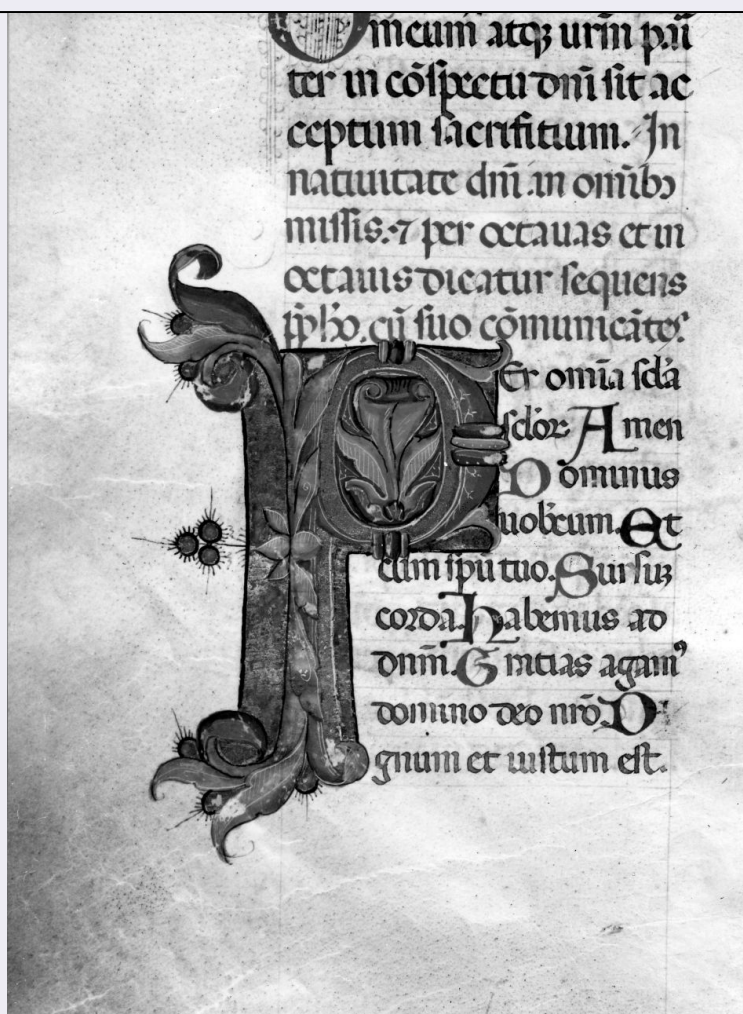 Omeum atq; urm̄ pari
ter in cōspectu dnī sit ac
ceptum sacrifitium. In
natiuitate dnī in omībꝫ
missis. ⁊ per octauas et in
octauis dicatur sequens
cū suo cōmunicātes.
PEr omīa scl̄a
scl̄oꝝ Amen
Dominus
uobcum. Et
cum spū tuo. Sursuꝫ
corda. Habemus ad
dnm̄. Gratias agamꝰ
domino deo nrō. Di
gnum et iustum est.